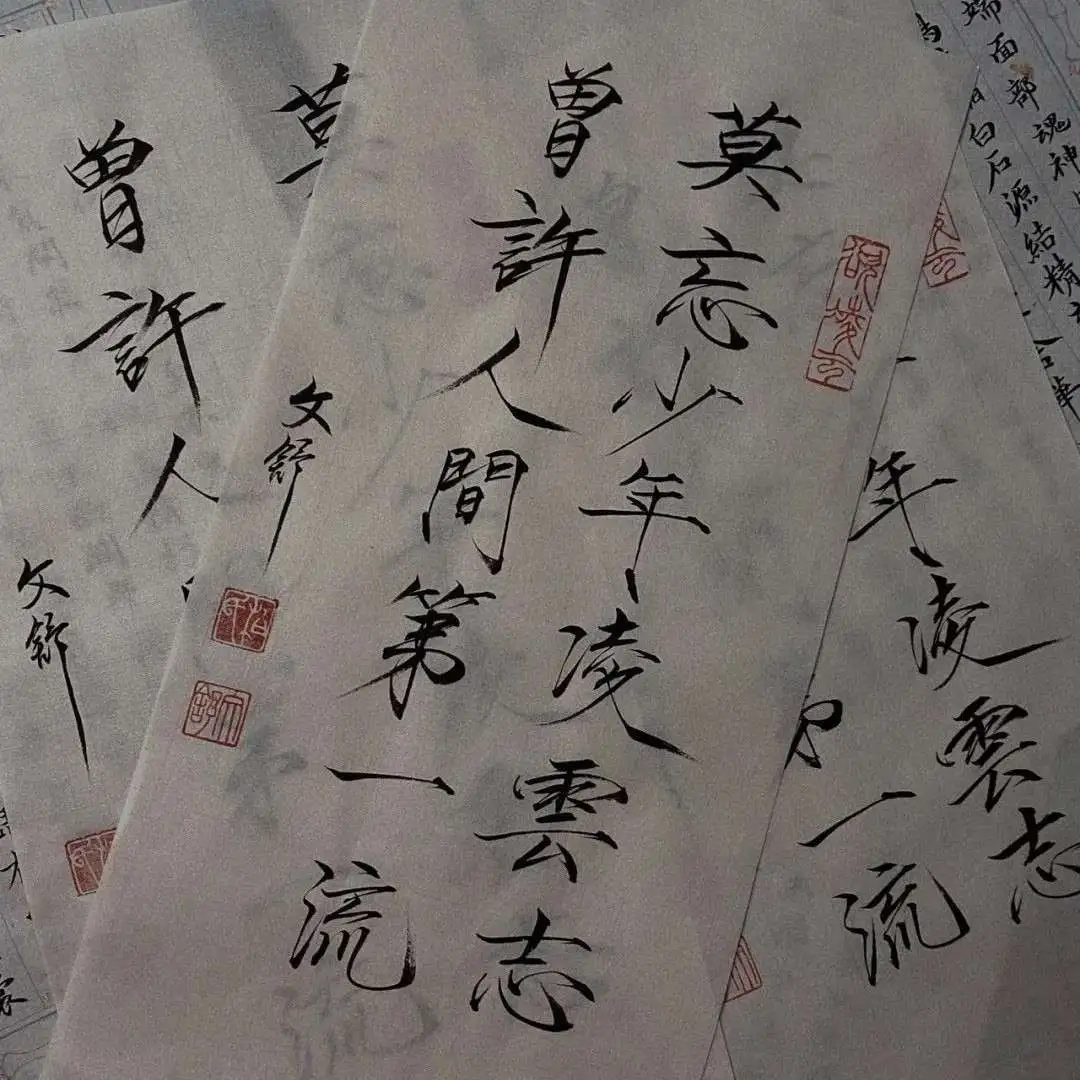 莫忘少年凌雲志
曾許人間第一流
文舒
曾許人
文舒
年凌雲志
一流
端面部魂神
白石源結精